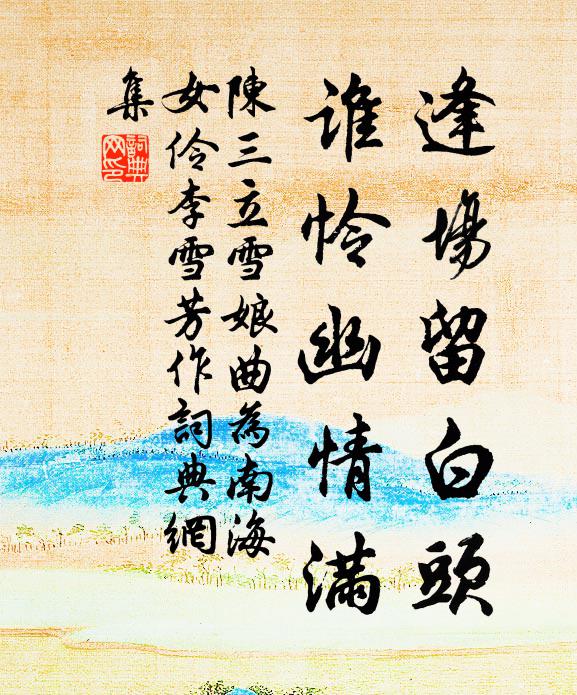 逢場留白頭
誰怜幽情滿
陳三立雪娘曲為南海
女伶李雪芳作詞典網
集
詞典網印